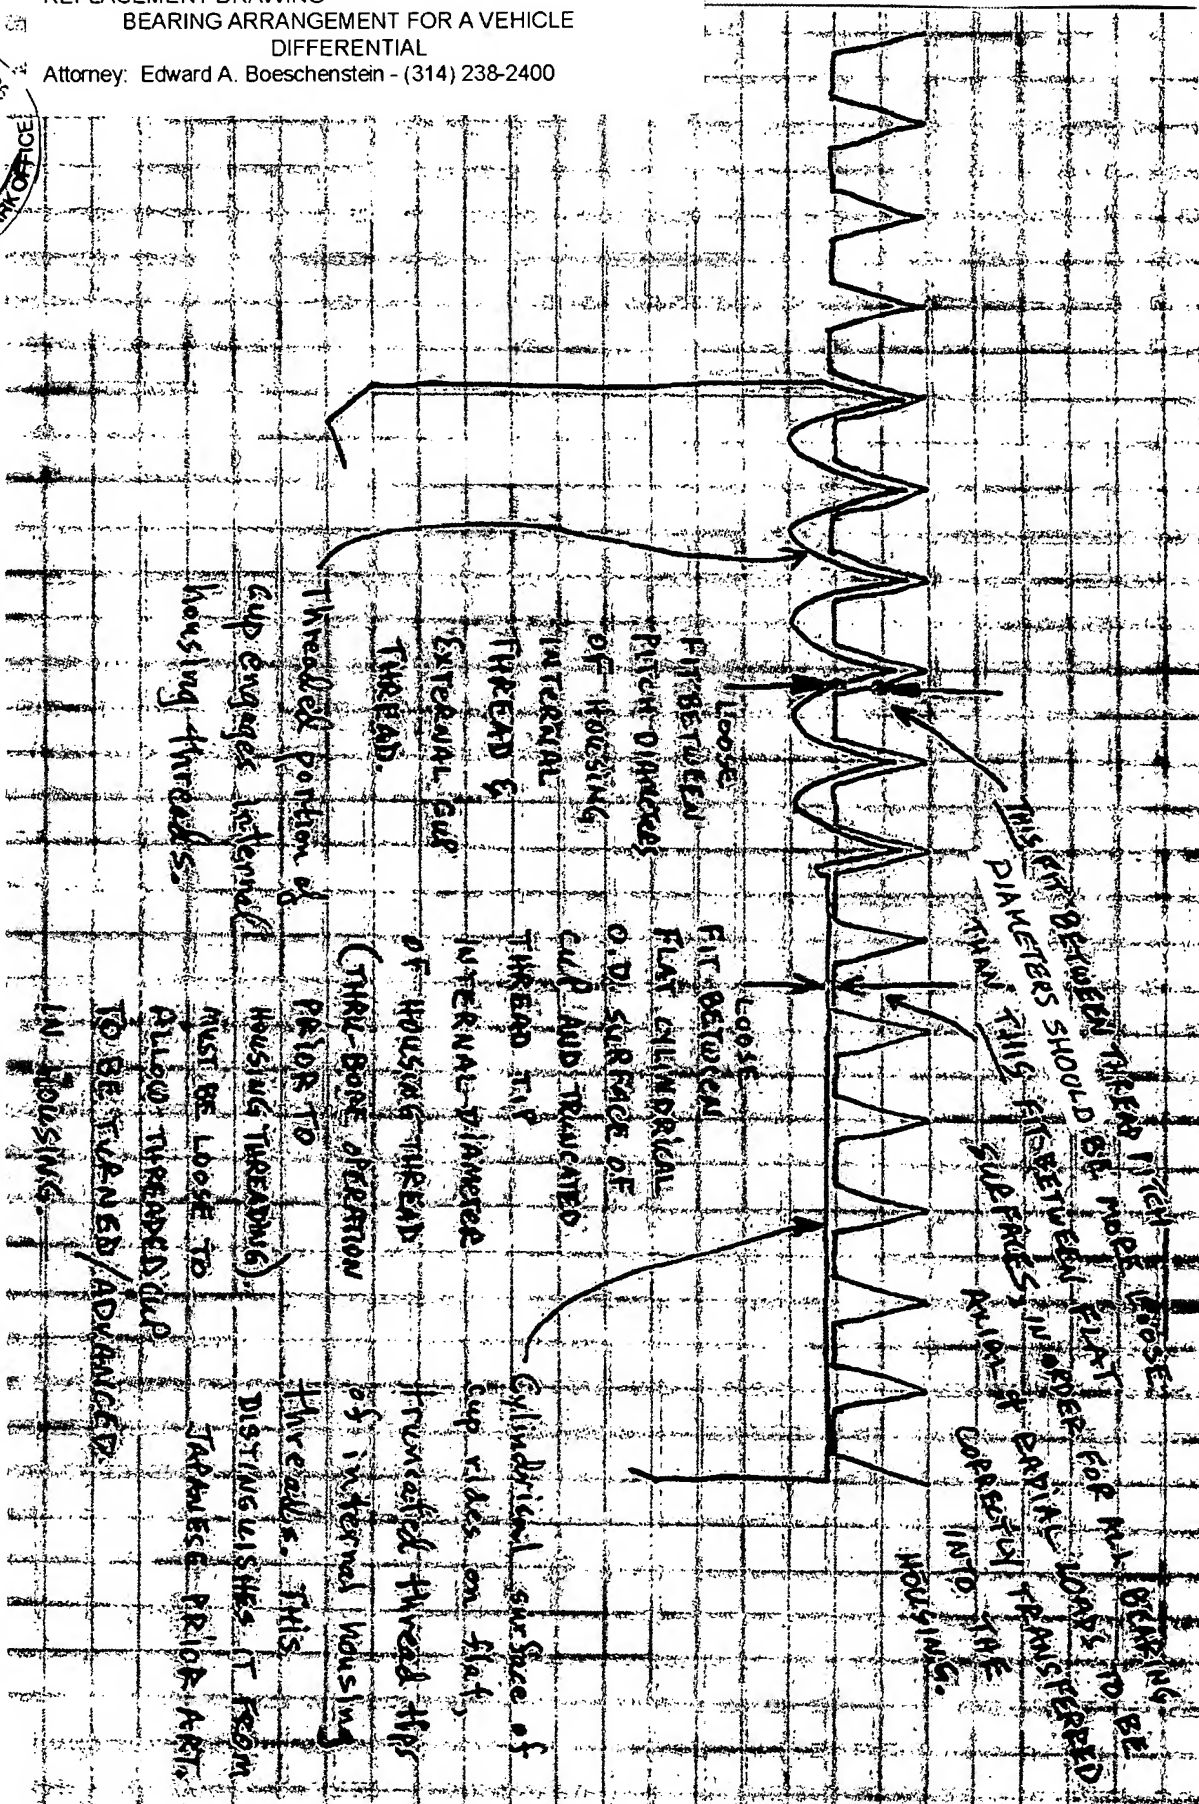 REPLACEMENT DRAWING
BEARING ARRANGEMENT FOR A VEHICLE
DIFFERENTIAL
Attorney: Edward A. Boeschenstein - (314) 238-2400
OFFICE
THIS FIT BETWEEN THREAD PITCH
DIAMETERS SHOULD BE MORE LOOSE
THAN THIS FIT BETWEEN FLAT
SURFACES IN ORDER FOR ALL BEARING
RADIAL LOADS TO BE
CORRECTLY TRANSFERED
INTO THE
HOUSING.
LOOSE
FIT BETWEEN
PITCH DIAMETERS
OF HOUSING
INTERNAL
THREAD &
EXTERNAL CUP
THREAD.
Threaded portion of
Cup engages internal
housing threads.
LOOSE
FIT BETWEEN
FLAT CYLINDRICAL
O.D. SURFACE OF
CUP AND TRUNCATED
THREAD TIP
INTERNAL DIAMETER
OF HOUSING THREAD
(THRU-BORE OPERATION
PRIOR TO
HOUSING THREADING)
MUST BE LOOSE TO
ALLOW THREADED CUP
TO BE TURNED/ADVANCED
IN HOUSING.
Cylindrical surface of
Cup rides on flat,
truncated thread tips
of internal housing
threads. THIS
DISTINGUISHES IT FROM
JAPANESE PRIOR ART.